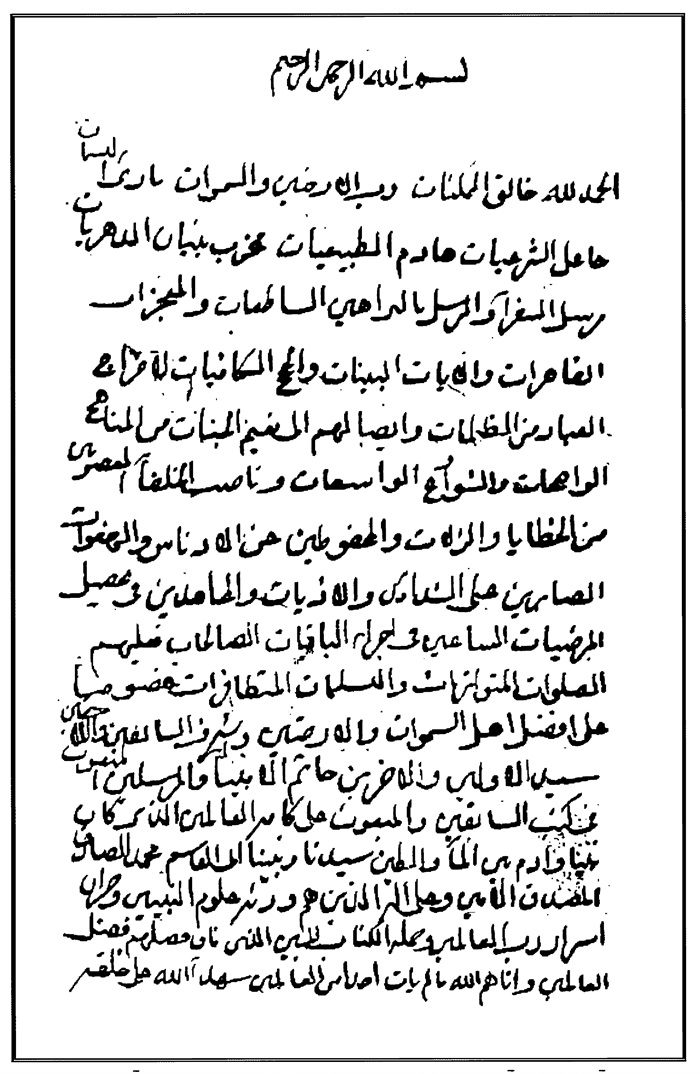 بسم الله الرحمن الرحيم
الحمد لله خالق الممكنات ورب الارضين والسموات بارئ النسمات
جاعل الشرعيات هادم الطبيعيات مخرب بنيان الدهريات
مرسل السفراء والرسل بالبراهين الساطعات والمعجزات
القاهرات والايات البينات والحجج الكافيات لاخراج
العباد من الظلمات وايصالهم الى نعيم الجنات من المناهج
الواضحات والشوارع الواسعات وناصب الخلفاء المعصومين
من الخطايا والزلات والمحفوظين عن الادناس والهفوات
الصابرين على الشدائد والاذيات والجاهدين فى تحصيل
المرضيات الساعين فى اجراء الباقيات الصالحات عليهم
الصلوات المتواترات والتسليمات المتظافرات خصوصا
على افضل اهل السموات والارضين وشرف السابقين واللاحقين
سيد الاولين والاخرين خاتم الانبياء والمرسلين المنعوت
فى كتب السابقين والمبعوث على كافة العالمين الذى كان
نبيا وادم بين الماء والطين سيدنا ونبينا ابى القاسم محمد الصادق
المصدق الامين وعلى اله الذين هم ورثة علوم النبيين وخزان
اسرار رب العالمين وحملة الكتاب المبين الذين فاق فضلهم فضل
العالمين واتاهم الله ما لم يات احدا من العالمين شهداء الله على خلقه